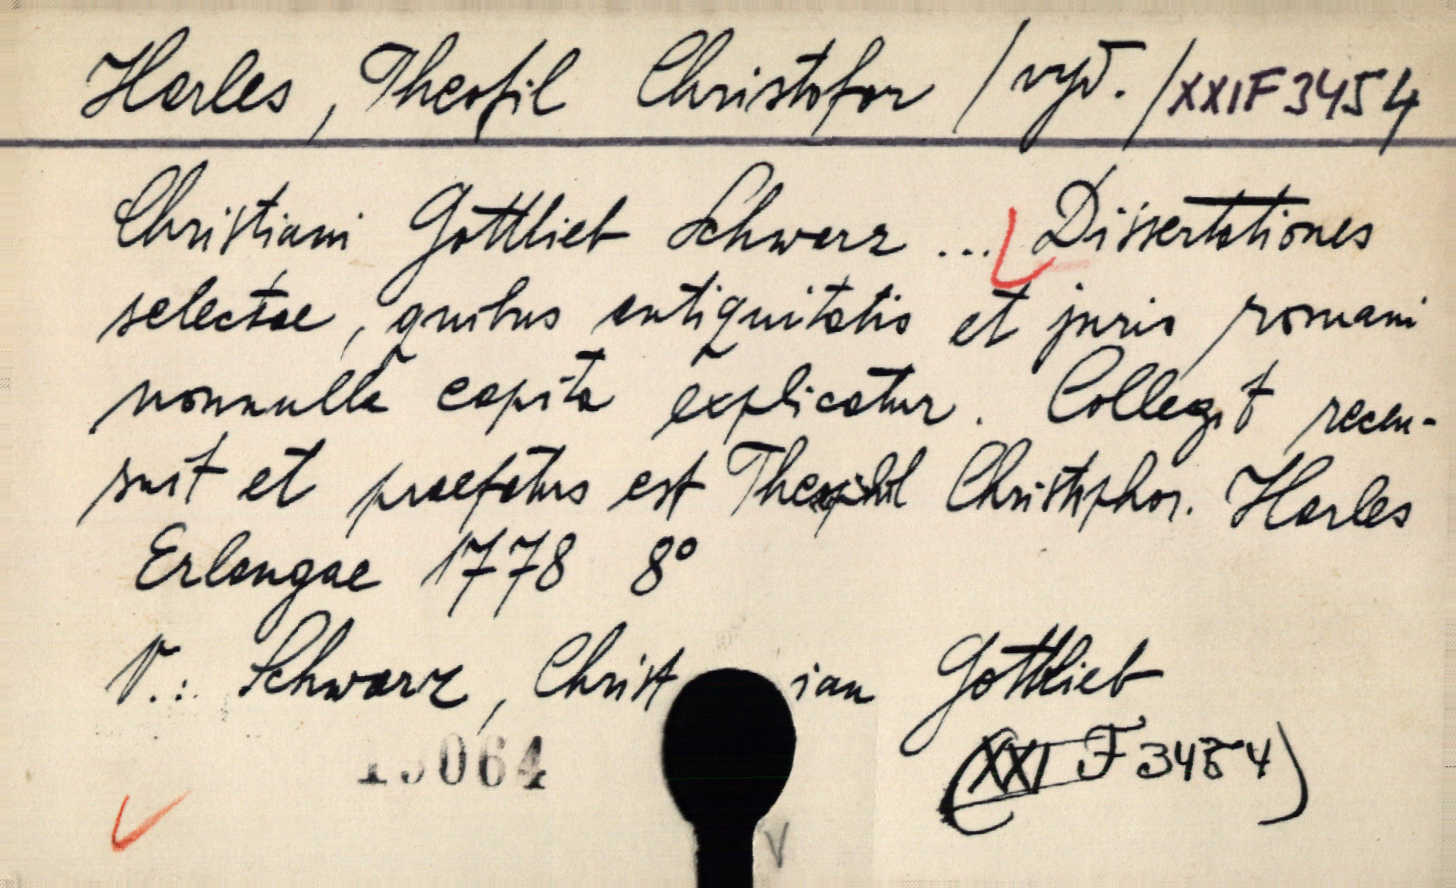 Harles, Theofil Christofor /vyd./ XXI F 3454
Christiani Gottlieb Schwarz ... Dissertationes
selectae, quibus antiquitatis et juris romani
nonnulla capita explicatur. Collegit recen-
suit et praefatus est Theophil Christphor. Harles
Erlangae 1778 8°
V.: Schwarz, Christ ian Gottlieb
(XXI F 3454)
064
V